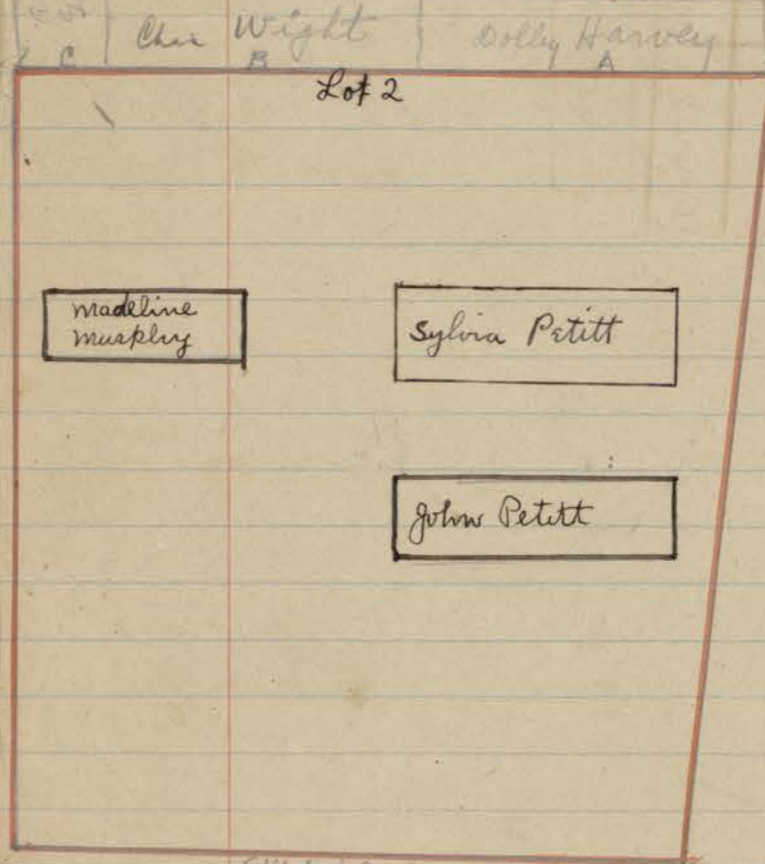 Chas Wight Dolly Harvey
C B A
Lot 2
Madeline
Murphy
Sylvia Petitt
John Petitt